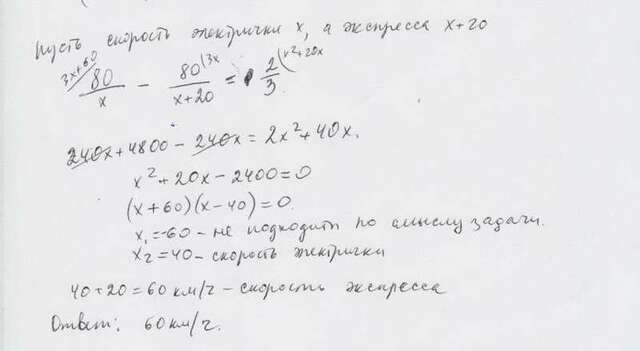 Пусть скорость электрички x, а экспресса x+20
3x+60/ 80/x − 80/(x+20) (3x = 2/3 (x²+20x
240x+4800−240x=2x²+40x.
x²+20x−2400=0
(x+60)(x−40)=0.
x₁=−60 − не подходит по смыслу задачи.
x₂=40 − скорость электрички
40+20=60 км/ч − скорость экспресса
Ответ: 60 км/ч.